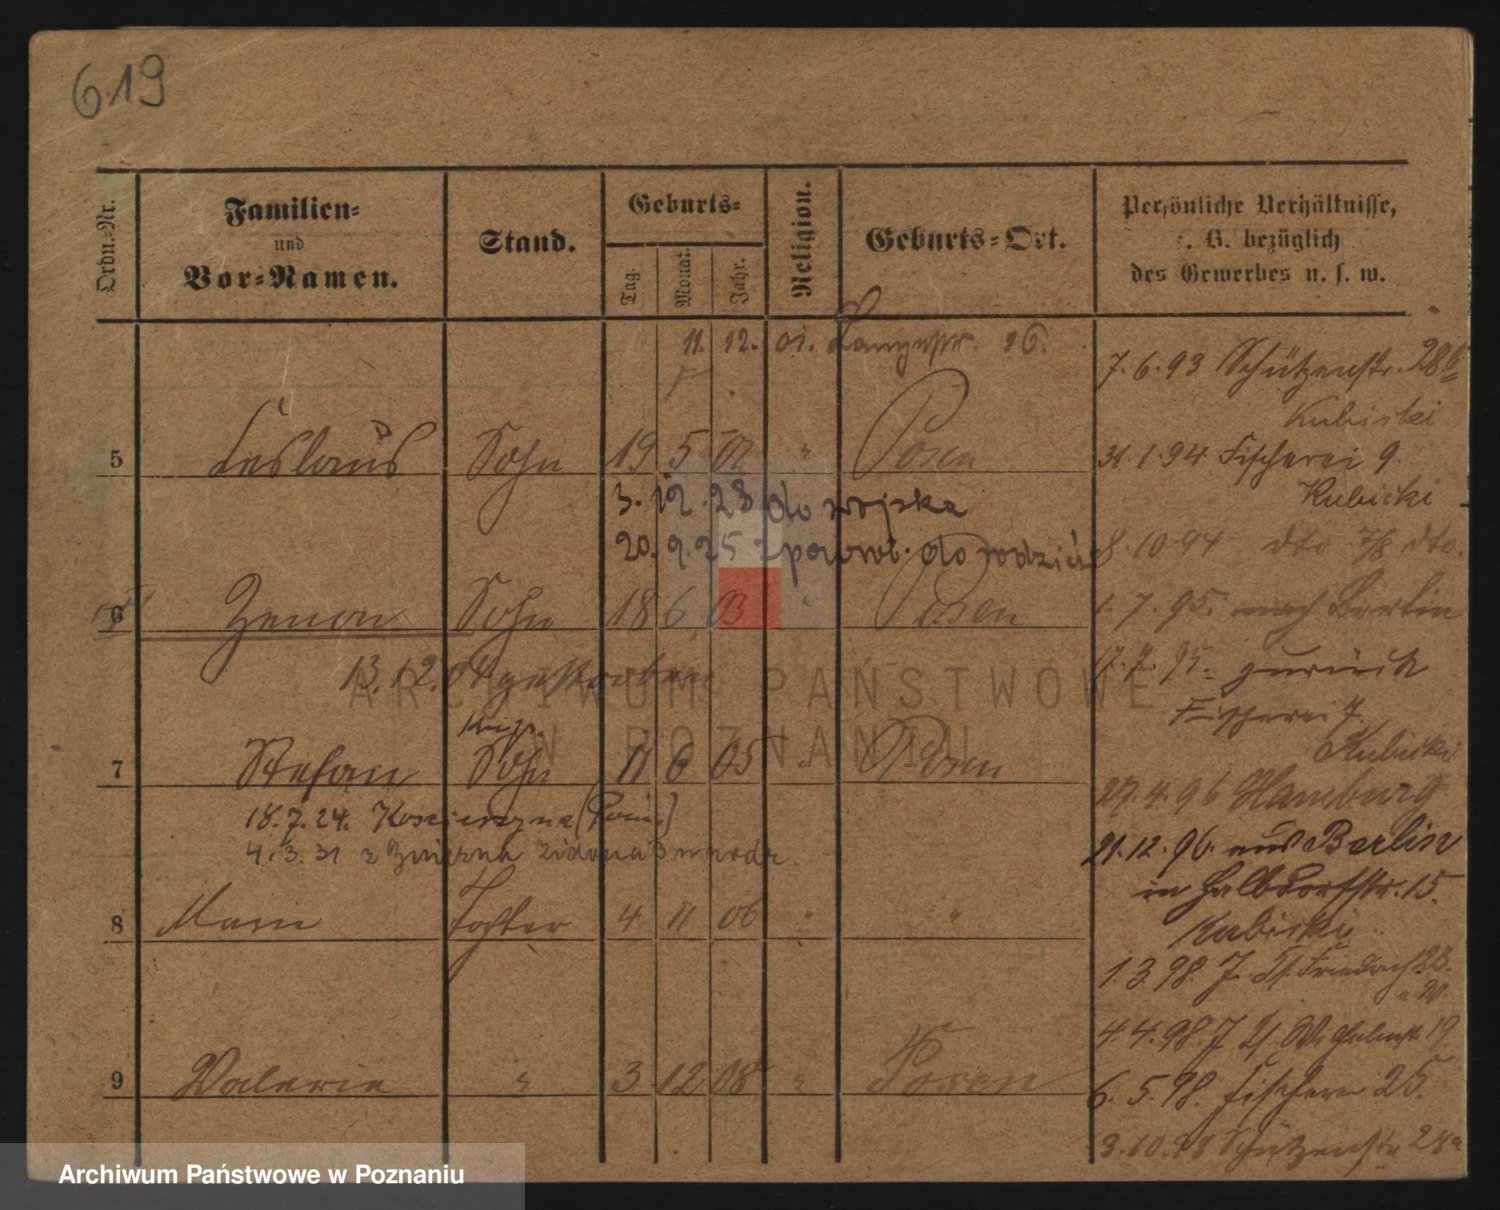 619
Ordn.-Nr.
Familien-
und
Vor-Namen.
Stand.
Geburts-
Tag.
Monat.
Jahr.
Religion.
Geburts-Ort.
Persönliche Verhältnisse,
z. B. bezüglich
des Gewerbes u. s. w.
11. 12. 01. Langestr. 16.
7. 6. 93 Schützenstr. 28b
Kubicki
5 Leslaus Sohn 19 5 02 " Posen
31. 1. 94 Fischerei 9.
Kubicki
3. 12. 23 do wojska
20. 9. 25 z powrot. do rodziców
8. 10 94 dto 7/8 dto.
6 Zenon Sohn 18 6 03 " Posen
1. 7. 95. nach Berlin
13. 12. 04 gestorben
17. 7. 95. zurück
Fischerei 7.
Kubicki
7 Stefan Sohn 11 6 05 " Posen
27. 4. 96 Hamburg
18. 7. 24. Koscierzyna (Pom.)
4. 3. 31 z
21. 12. 96. aus Berlin
in Halbdorfstr. 15.
Kubicki
8 Marie Tochter 4 11 06 " "
1. 3. 98. J. St. Friedrichst. 23.
4. 4. 98. J. St. Wilhelmst. 19
9 Valerie " 3 12 08 " Posen
6. 5. 98. Fischerei 25.
3. 10. 98 Schützenstr. 28a
ARCHIWUM PAŃSTWOWE
W POZNANIU
Archiwum Państwowe w Poznaniu